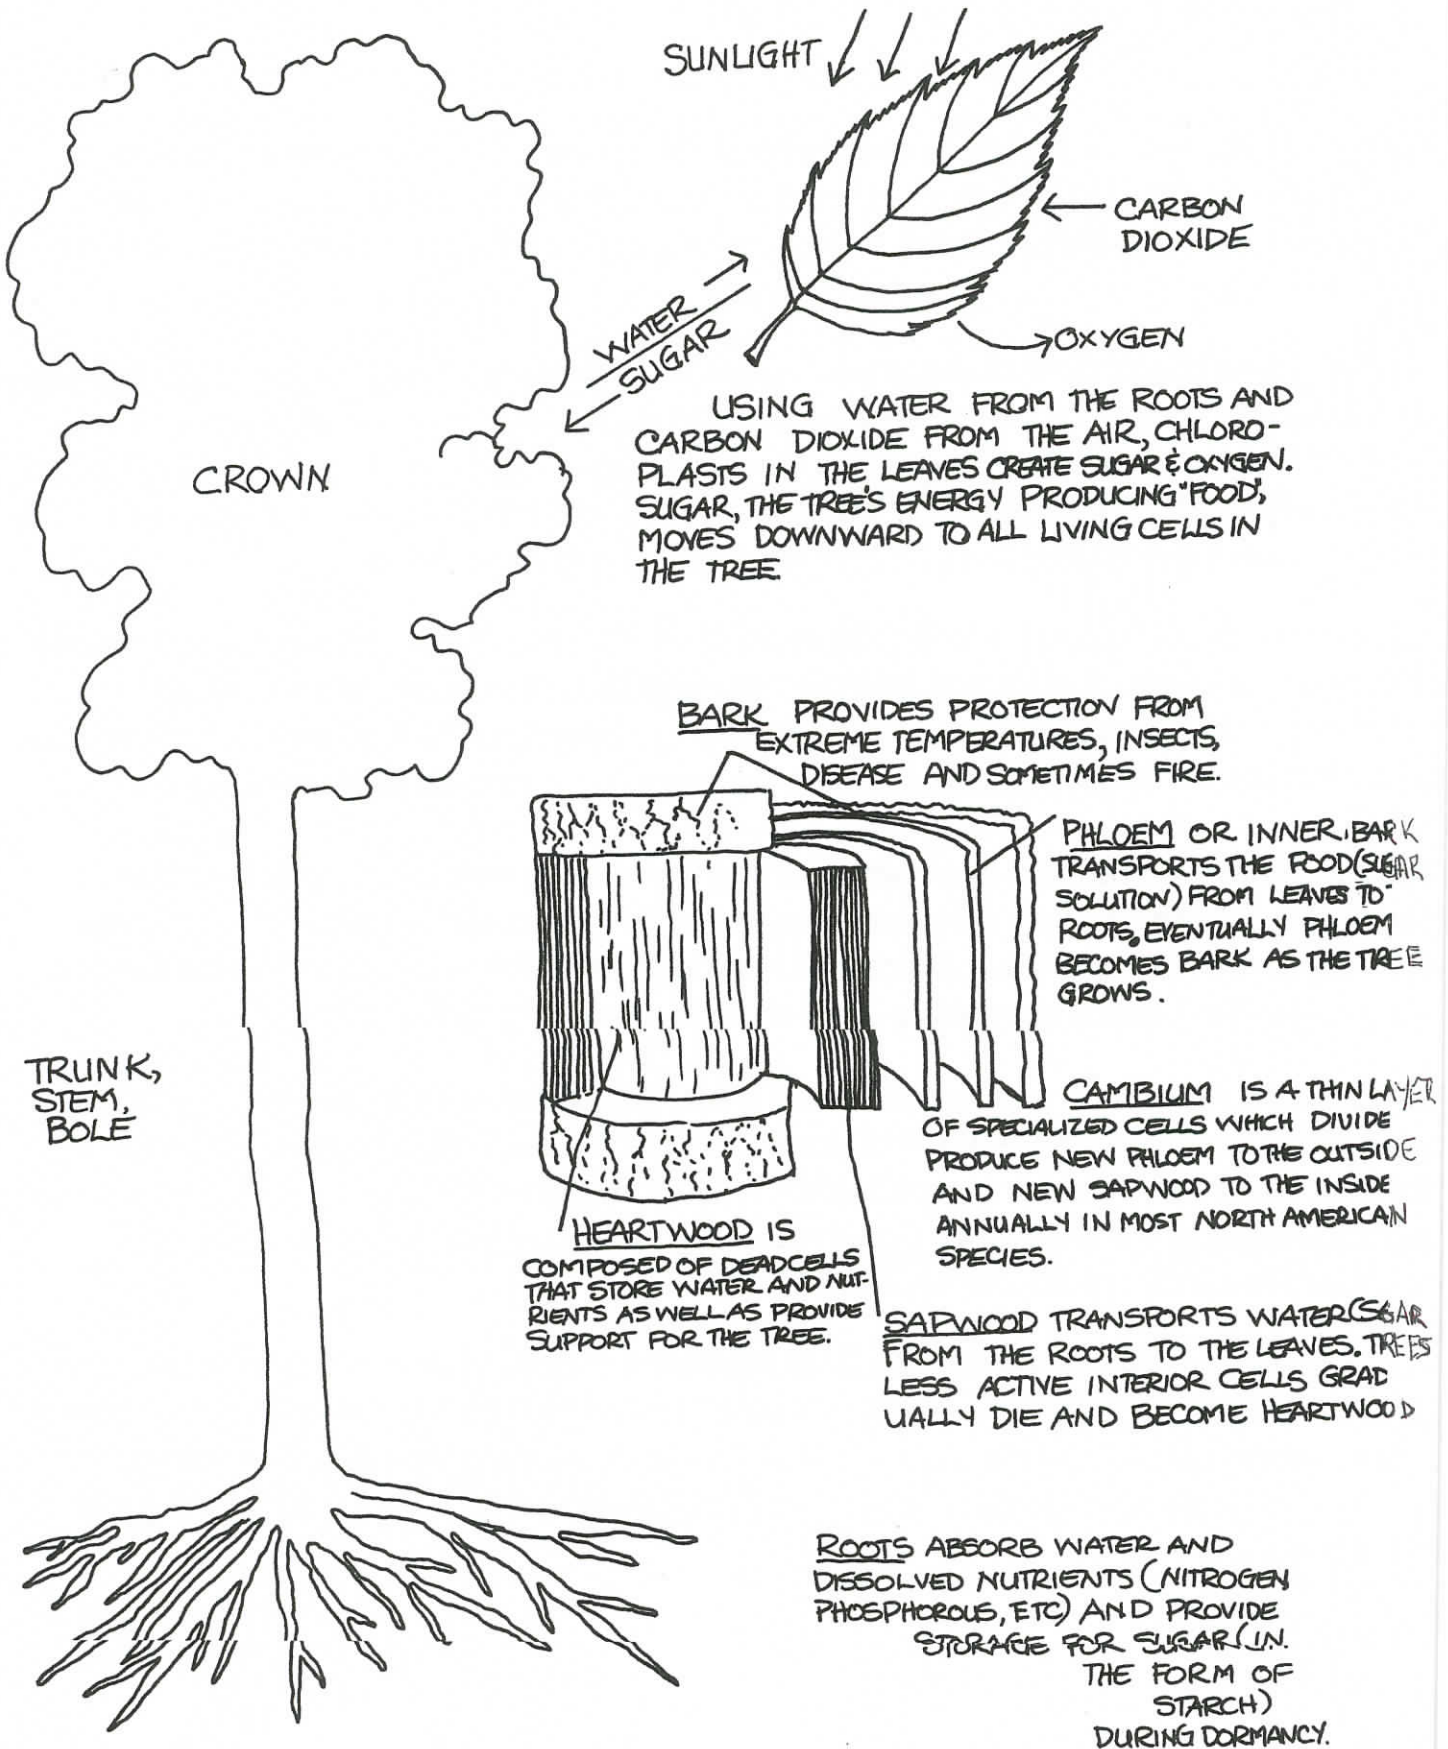 SUNLIGHT
CARBON
DIOXIDE
WATER
SUGAR
OXYGEN
USING WATER FROM THE ROOTS AND
CARBON DIOXIDE FROM THE AIR, CHLORO-
PLASTS IN THE LEAVES CREATE SUGAR & OXYGEN.
SUGAR, THE TREE'S ENERGY PRODUCING "FOOD",
MOVES DOWNWARD TO ALL LIVING CELLS IN
THE TREE.
CROWN
BARK PROVIDES PROTECTION FROM
EXTREME TEMPERATURES, INSECTS,
DISEASE AND SOMETIMES FIRE.
PHLOEM OR INNER BARK
TRANSPORTS THE FOOD (SUGAR
SOLUTION) FROM LEAVES TO
ROOTS. EVENTUALLY PHLOEM
BECOMES BARK AS THE TREE
GROWS.
TRUNK,
STEM,
BOLE
CAMBIUM IS A THIN LAYER
OF SPECIALIZED CELLS WHICH DIVIDE
PRODUCE NEW PHLOEM TO THE OUTSIDE
AND NEW SAPWOOD TO THE INSIDE
ANNUALLY IN MOST NORTH AMERICAN
SPECIES.
HEARTWOOD IS
COMPOSED OF DEAD CELLS
THAT STORE WATER AND NUT-
RIENTS AS WELL AS PROVIDE
SUPPORT FOR THE TREE.
SAPWOOD TRANSPORTS WATER
FROM THE ROOTS TO THE LEAVES. TREES
LESS ACTIVE INTERIOR CELLS GRAD
UALLY DIE AND BECOME HEARTWOOD
ROOTS ABSORB WATER AND
DISSOLVED NUTRIENTS (NITROGEN
PHOSPHOROUS, ETC) AND PROVIDE
STORAGE FOR SUGAR (IN
THE FORM OF
STARCH)
DURING DORMANCY.